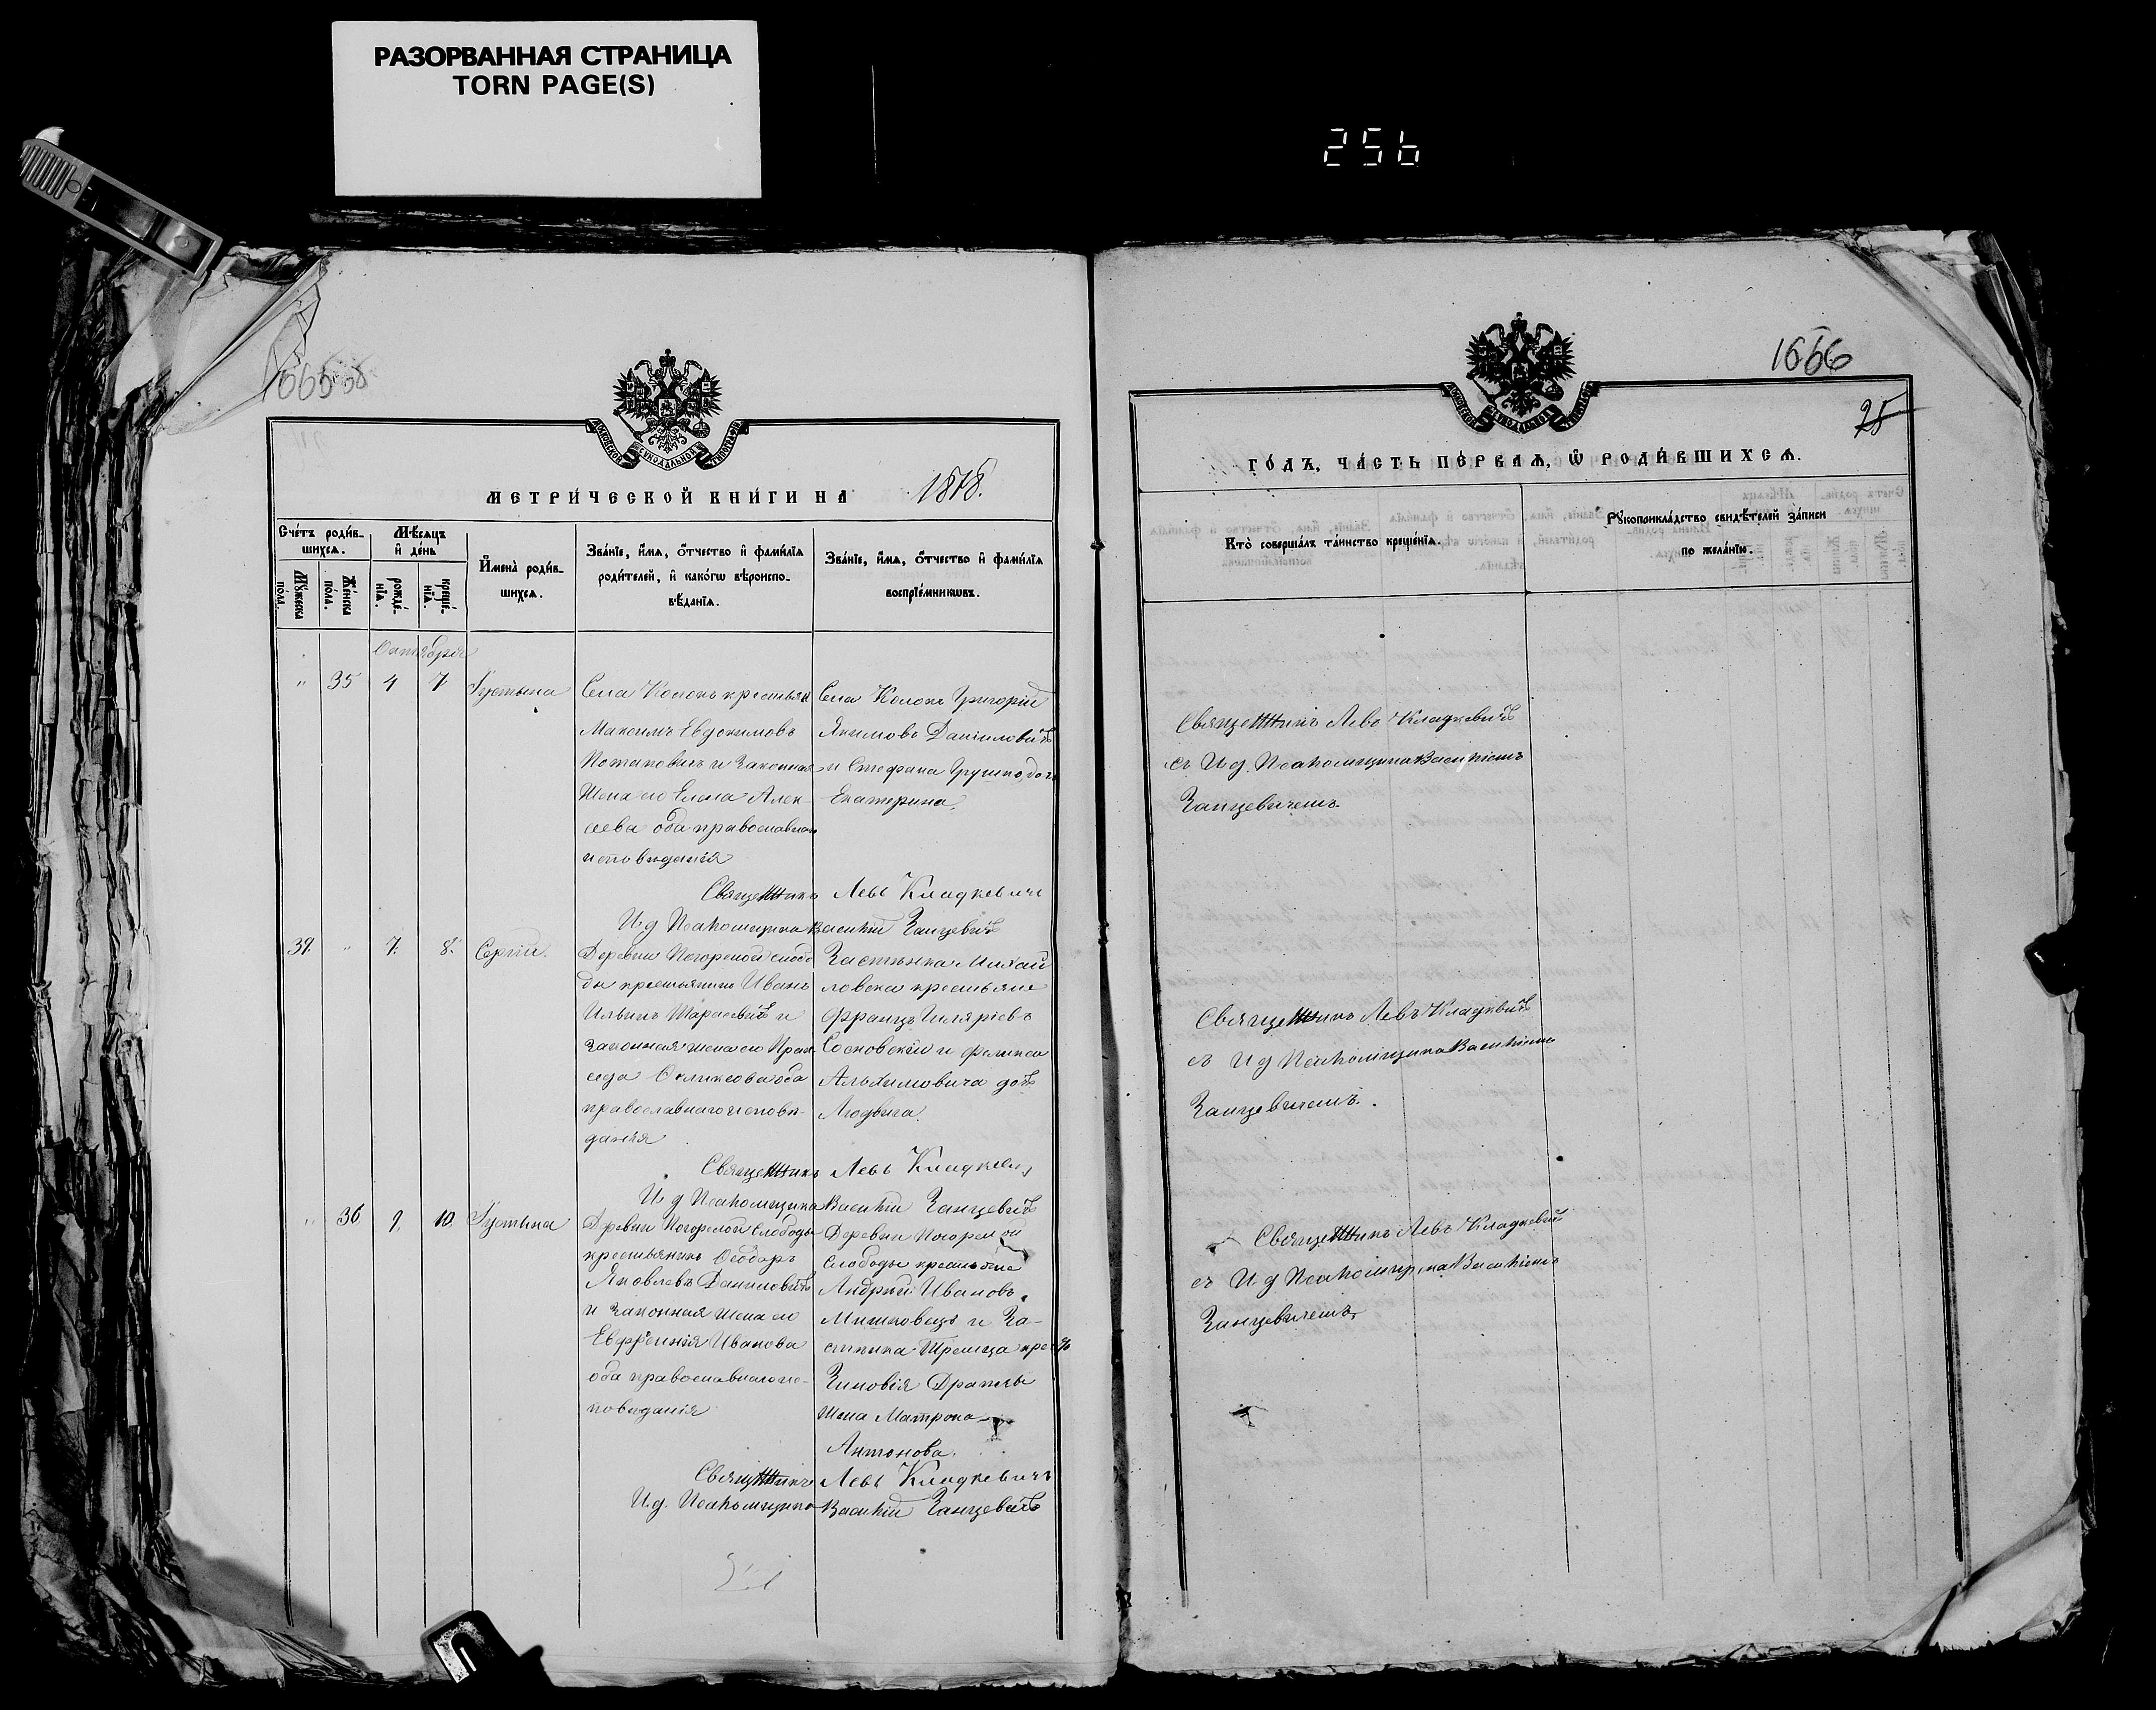 РАЗОРВАННАЯ СТРАНИЦА
TORN PAGE(S)
256
1666
25
МОСКОВСКОЙ СѴНОДАЛЬНОЙ ТИПОГРАФІИ
МЕТРИ́ЧЕСКОЙ КНИ́ГИ НА 1878.
Сче́тъ роди́в-
шихсѧ.
Мꙋ́жеска по́ла.
Же́нска по́ла.
Мѣ́сѧцъ и҆ де́нь
рожде́-нїѧ.
креще́-нїѧ.
И҆мена̀ роди́в-
шихсѧ.
Зва́нїе, и҆́мѧ, ѻ҆́тчество и҆ фами́лїѧ
роди́телей, и҆ како́гѡ вѣроиспо-
вѣ́данїѧ.
Зва́нїе, и҆́мѧ, ѻ҆́тчество и҆ фами́лїѧ
воспрїе́мникѡвъ.
Октября
" 35 4 7 Іустина
Села Колокъ крестьян
Максимъ Евдокимовъ
Потаповичъ и законная
жена его Елена Алек-
сеева оба православнаго
исповеданія
Села Колокъ Григорій
Якимовъ Даниловичъ
и Стефана Грушко дочь
Екатерина.
Священникъ Левъ Кладкевичъ
И.д Псаломщика Василій Занцевичъ
39. " 7. 8. Сергій.
Деревни Погорелой слобо
ды крестьянинъ Иванъ
Ильинъ Тарасевичъ и
законная жена его Прак-
седа Феликсова оба
православнаго исповѣ-
данія
Застѣнка Михай
ловска крестьяне
Францъ Гиляріевъ
Сосновскій и Феликса
Альхимовича дочь
Людвига.
Священникъ Левъ Кладкевичъ
И.д Псаломщика Василій Занцевичъ
" 36 9. 10. Іустина
Деревни Погорелой Слободы
крестьянинъ Ѳеодоръ
Яковлевъ Даниловичъ
и законная жена его
Евфимія Иванова
оба православнаго ис-
поведанія
Деревни Погорелой
Слободы крестьяне
Андрей Ивановъ
и За-
стѣнка
Зиновія
жена Матрона
Антонова.
Священникъ Левъ Кладкевичъ
И.д. Псаломщика Василій Занцевичъ
ГО́ДЪ, ЧА́СТЬ ПЕ́РВАѦ, Ѽ РОДИ́ВШИХСѦ.
Кто̀ соверша́лъ та́инство креще́нїѧ.
Рꙋкоприкла́дство свидѣ́телей за́писи
по жела́нїю.
Священникъ Левъ Кладкевичъ
съ И.д. Псаломщика Василіемъ
Занцевичемъ.
Священникъ Левъ Кладкевичъ
съ И.д Псаломщика Василіемъ
Занцевичемъ.
Священникъ Левъ Кладкевичъ
съ И.д Псаломщика Василіемъ
Занцевичемъ.